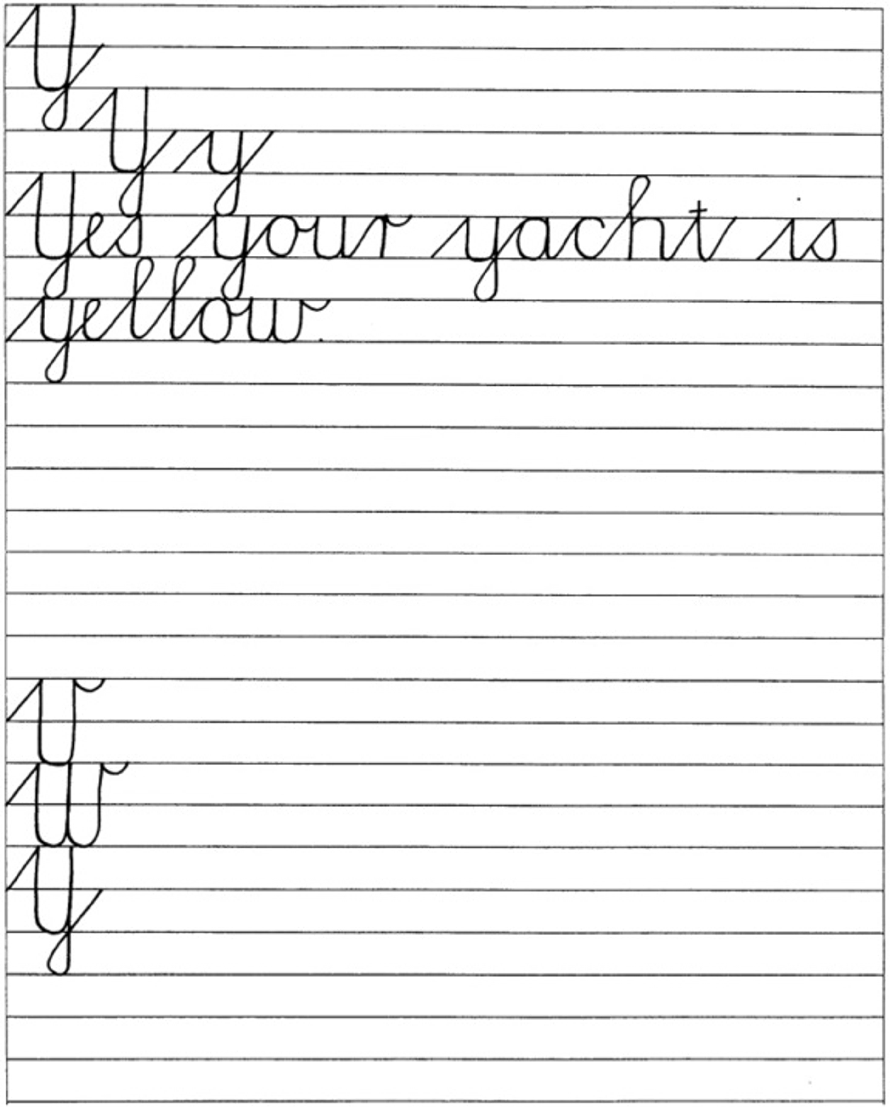 Y
Y y
Yes your yacht is
yellow.
V
W
Y